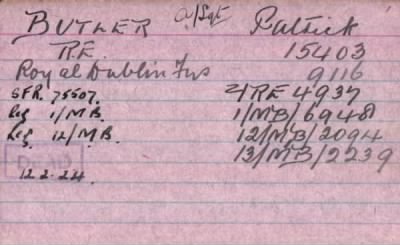 BUTLER a/Sgt Patrick
R.E. 15403
Royal Dublin Fus 9116
SFR. 75507. 4 RE 4937
Reg 1/M.B. 1/MB/6948
Reg. 12/M.B. 12/MB/2094
13/MB/2239
DEAD
12.2.24.